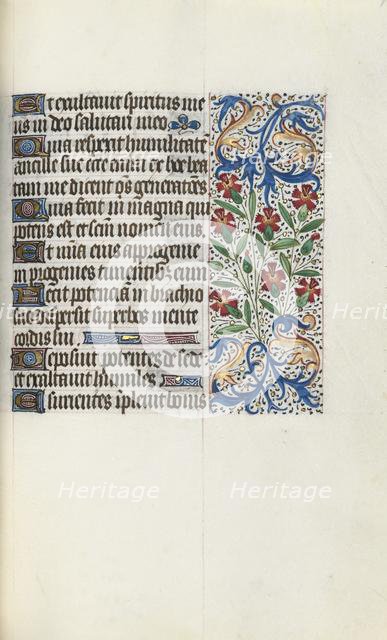 Et exultavit spiritus me
us in deo salutari meo
Quia respexit humilitatē
ancille sue ecce enim ex hoc bea
tam me dicent oēs generatōes
Quia fecit michi magna qui
potens est et sanctū nomen eius
Et mīa eius a progenie
in progenies timentibꝰ eum
Fecit potenciā in brachio
suo dispersit superbos mente
cordis sui
Deposuit potentes de sede
et exaltavit humiles
Esurientes iplevit bonis
heritage
Heritage
Heritage
Heritage
Heritage